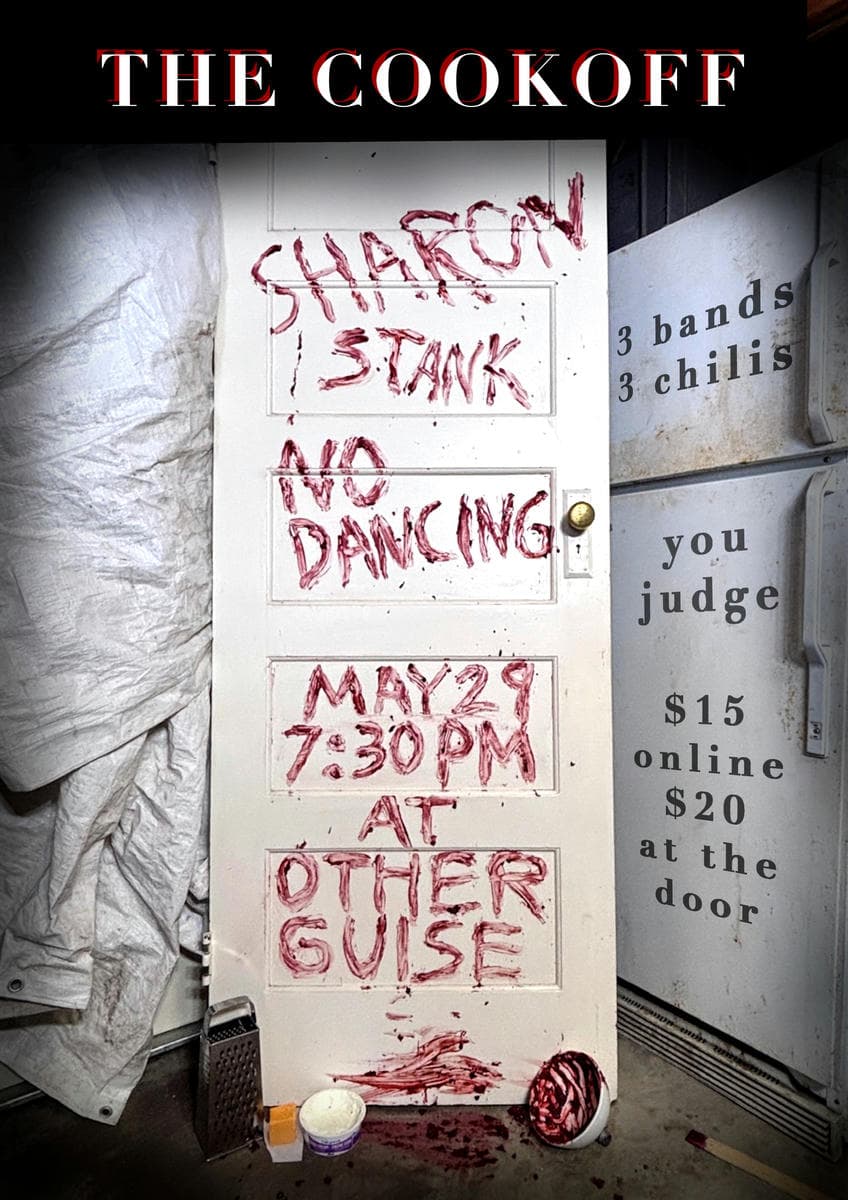 THE COOKOFF
SHARON
I STANK
NO
DANCING
MAY 29
7:30 PM
AT
OTHER
GUISE
3 bands
3 chilis
you
judge
$15
online
$20
at the
door